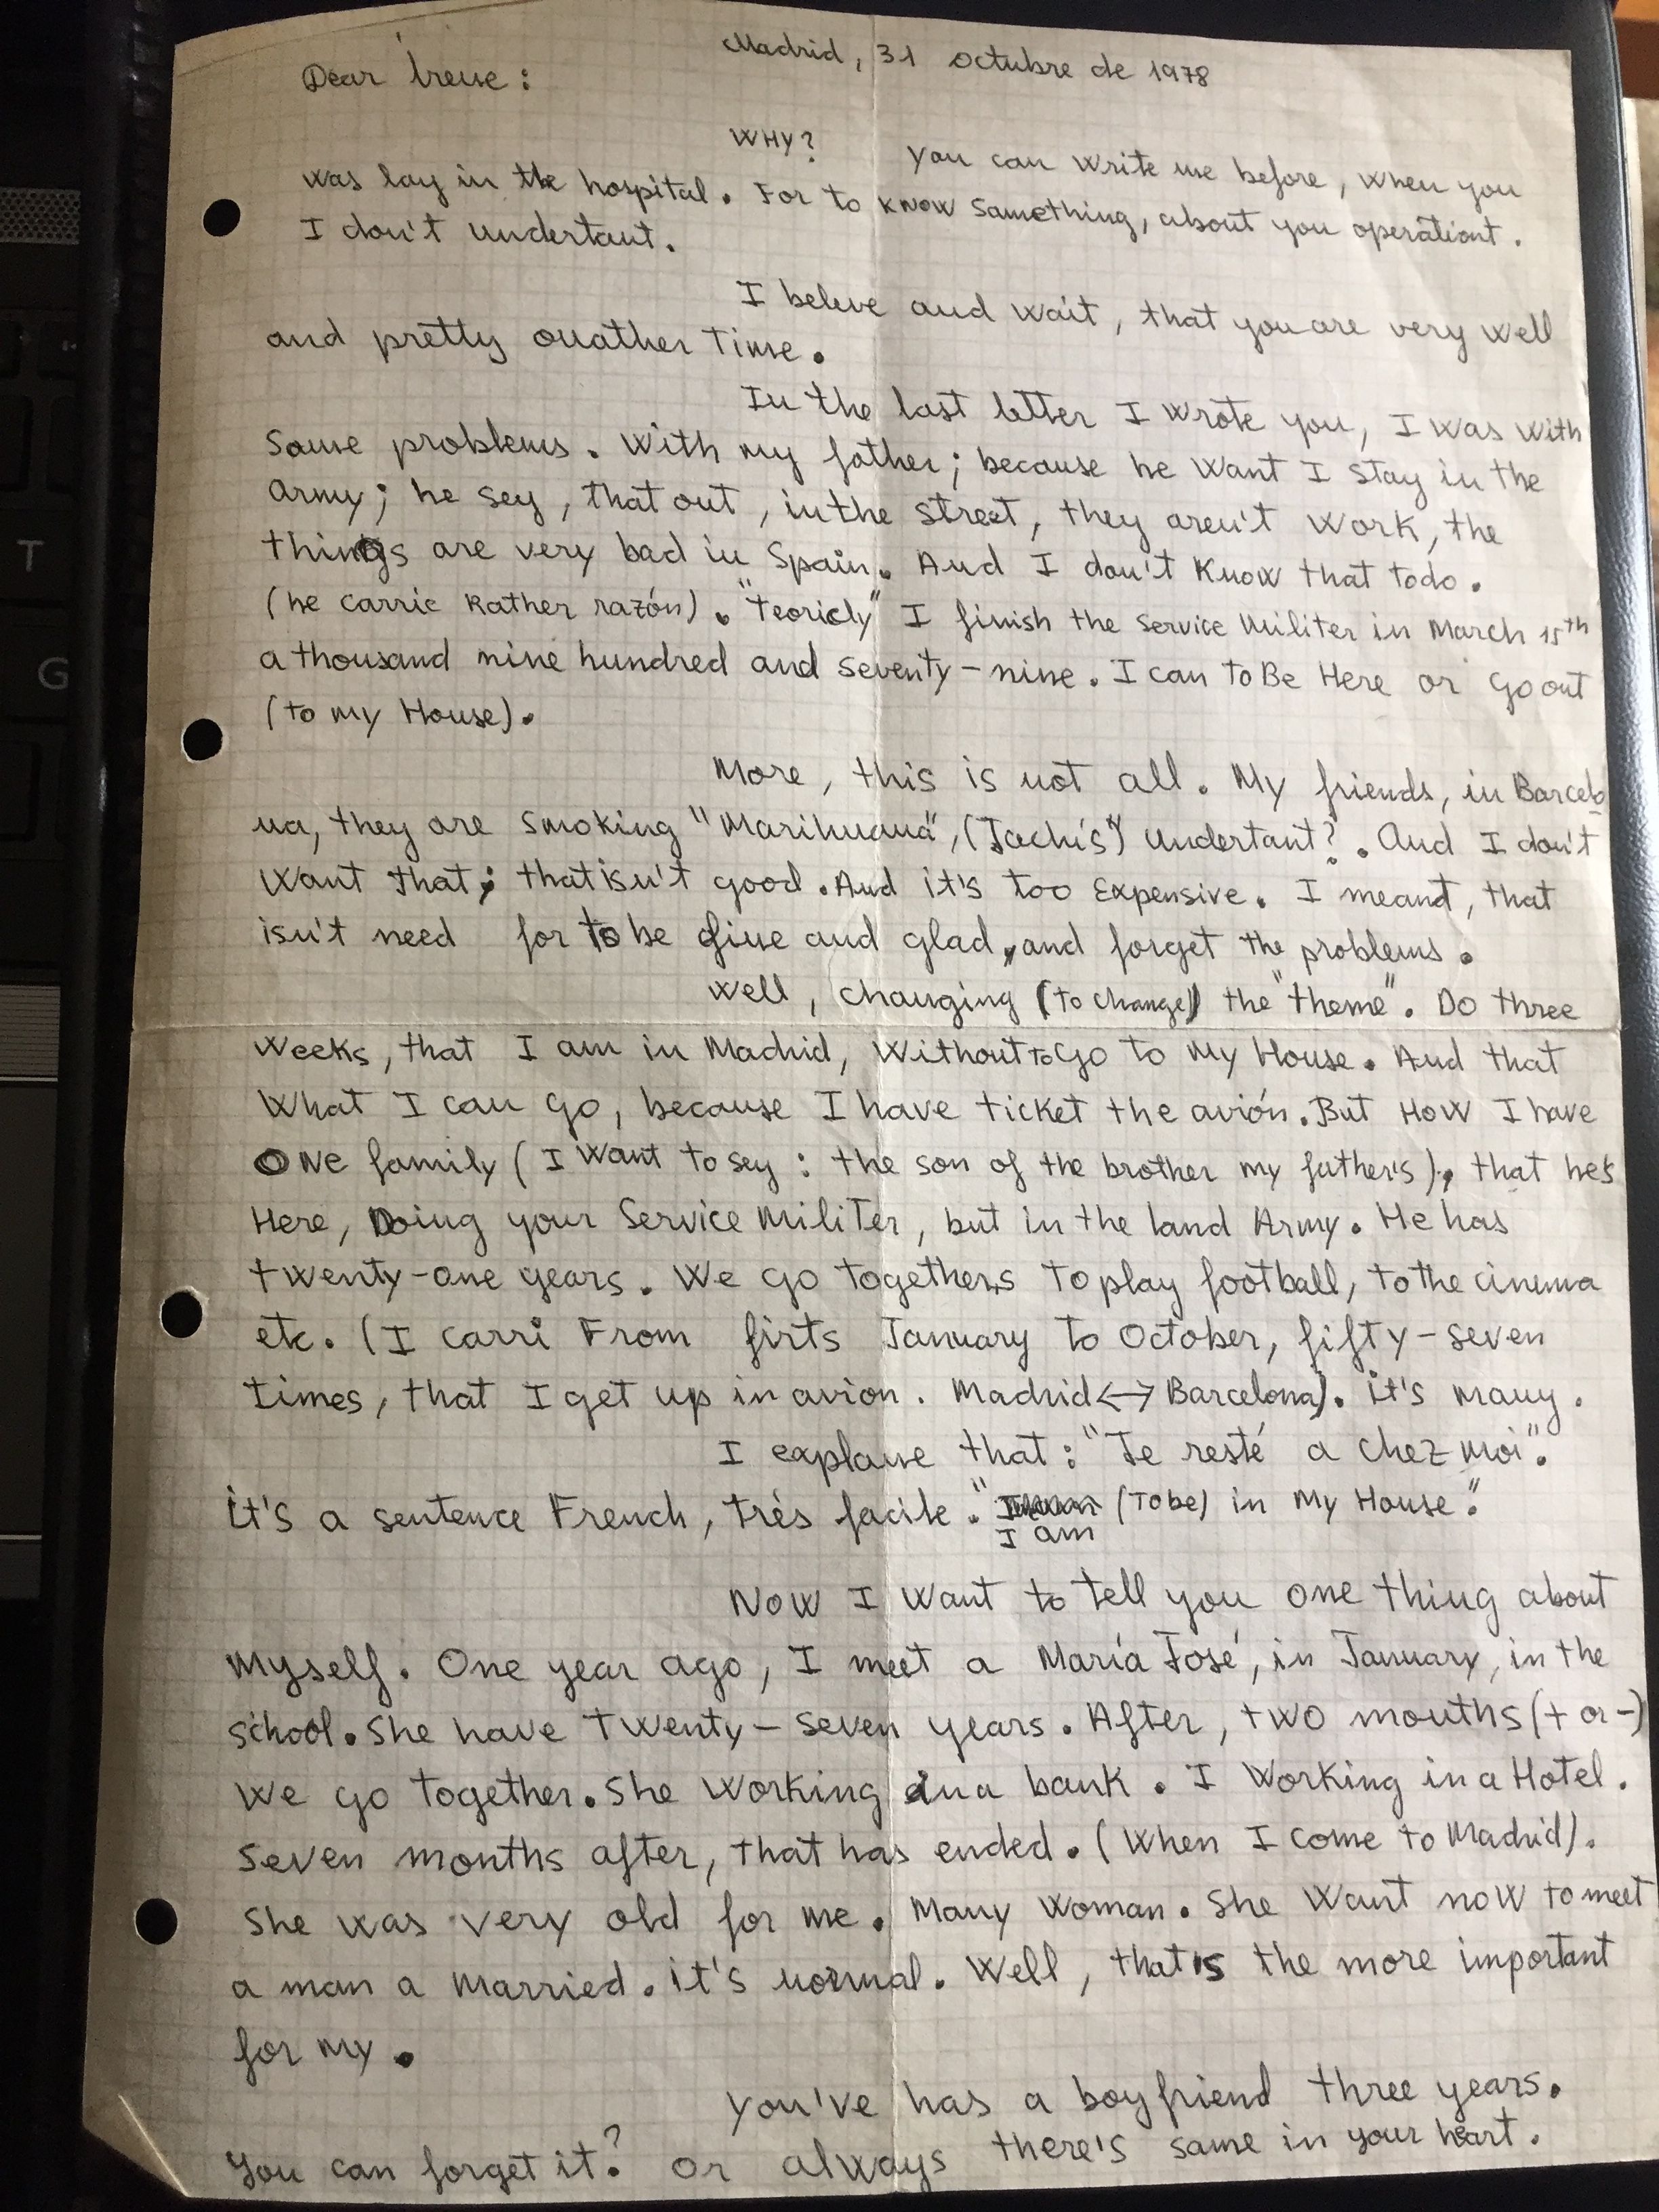 Madrid, 31 octubre de 1978
Dear Irene:
WHY? You can write me before, when you
was lay in the hospital. For to know Samething, about you operationt.
I don't undertant.
I beleve and wait, that you are very well
and pretty onather Time.
In the last letter I wrote you, I was with
Some problems. With my father; because he want I stay in the
army; he sey, that out, in the street, they aren't work, the
things are very bad in Spain. And I don't know that todo.
(he carric Rather razón). "teoricly" I finish the service militer in March 15th
a thousand nine hundred and seventy-nine. I can to Be Here or go out
(to my House).
More, this is not all. My friends, in Barcelo
na, they are smoking "Marihuana", (Jachís") undertant?. And I don't
want that; that isn't good. And it's too expensive. I meant, that
isn't need for to be fine and glad, and forget the problems.
Well, changing (to change) the "theme". Do three
weeks, that I am in Madrid, without to go to my House. And that
what I can go, because I have ticket the avión. But How I have
one family (I want to sey: the son of the brother my father's), that he's
Here, Doing your Service militer, but in the land Army. He has
twenty-one years. We go togethers to play football, to the cinema
etc. (I carri From firts January to October, fifty-seven
times, that I get up in avion. Madrid <-> Barcelona). it's many.
I explane that: "Je resté a chez moi".
it's a sentence French, trés facile. " (Tobe) in My House".
I am
Now I want to tell you one thing about
myself. One year ago, I meet a María José, in January, in the
school. She have twenty-seven years. After, two months (+ or -)
we go together. She working in a bank. I working in a Hotel.
Seven months after, that has ended. (when I come to Madrid).
She was very old for me. Many woman. She want now to meet
a man a married. it's normal. Well, that is the more important
for my.
You've has a boyfriend three years.
You can forget it? or always there's same in your heart.